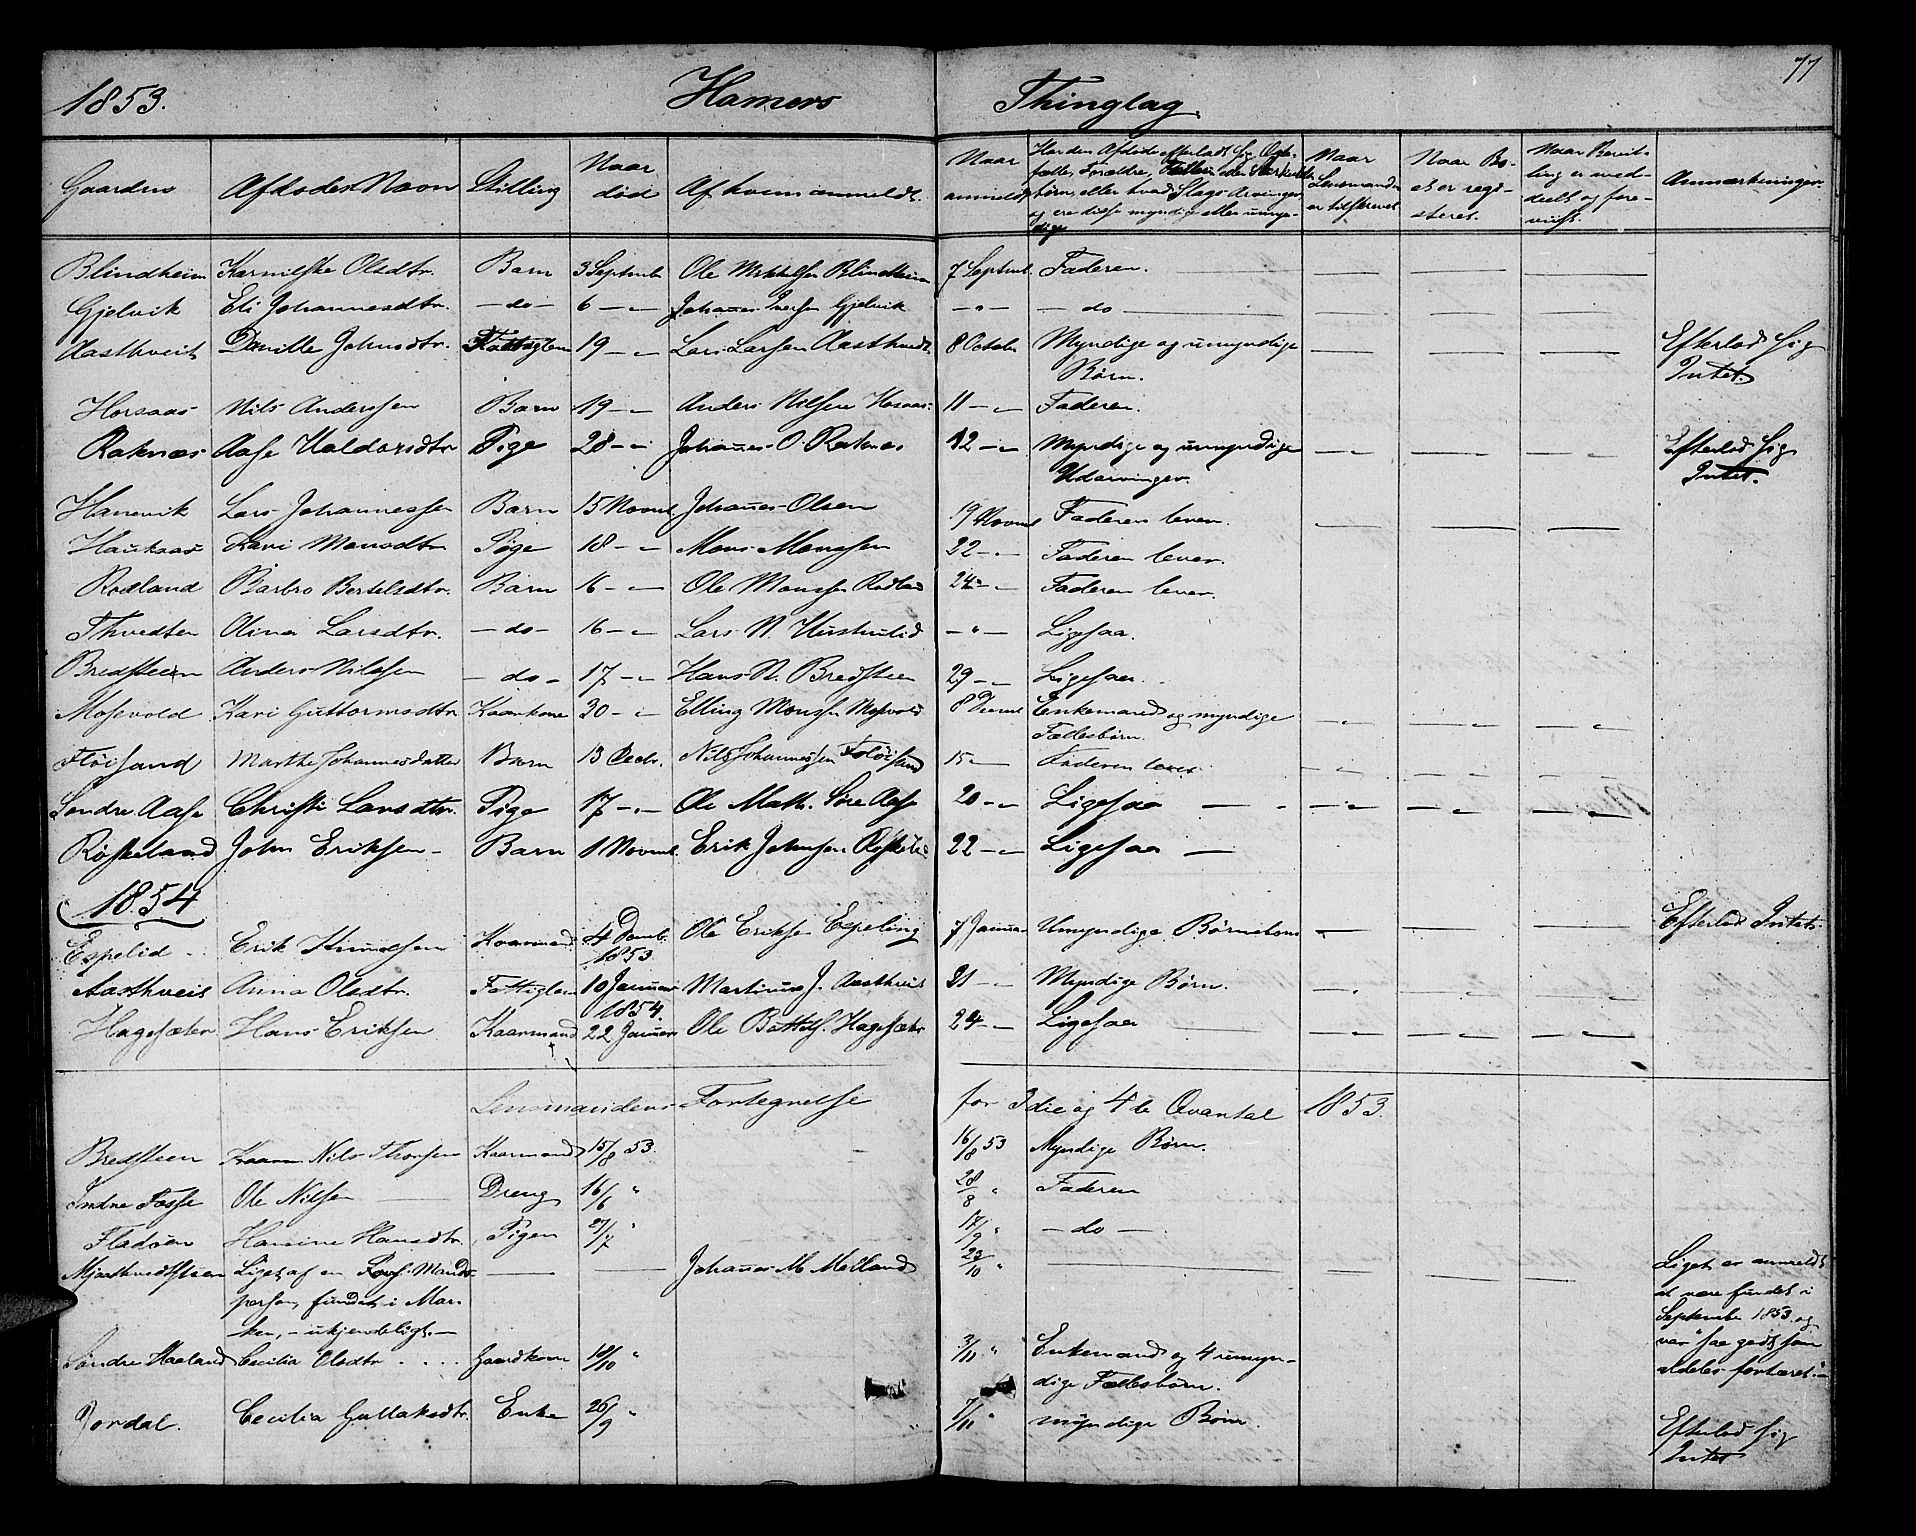 77
1853. Hamers Thinglag.
Gaardens | Afdødes Navn | Stilling | Naar død | Af hvem anmeldt. | Naar anmeldt | Har den Afdøde efterladt sig Ægtefælle, Forældre, Børn, eller hvad Slags Arvinger og ere disse myndige eller umyndige | Naar Lensmanden er tilskrevet | Naar Boet er registeret. | Naar Bevitling er meddeelt og forevist. | Anmærkninger.
Blindheim | Olsdtr. | Barn | 3 Septemb | Ole Mikkelsen Blindheim | 7 Septemb. | Faderen. | — | — | —
Gjelvik | Eli Johannesdtr. | — do — | 6 — „ — | Johannes Iversen Gjelvik | — „ — | — do — | — | — | —
Aasthveit | Johnsdtr. | Fattiglem | 19 — „ | Lars Larsen Aasthveit | 8 October | Myndige og umyndige Børn. | — | — | — | Efterlod sig Intet.
Horsaas | Nils Anderssen | Barn | 19 — „ | Anders Nilsen Hosaas. | 11 — „ | Faderen.
Raknæs | Aase Haldorsdtr | Pige | 28 — „ | Johannes O. Raknes | 12 — „ | Myndige og umyndige Udarvinger. | — „ — | — „ — | — „ — | Efterlod sig Intet.
Hanevik | Lars Johannessen | Barn | 15 Novmb. | Johannes Olsen | 19 Novmb | Faderen lever. | — | — | —
Haukaas | Kari Monsdtr | Pige | 18 — „ | Mons Monssen | 22 — „ | Faderen lever.
Rodland | Barbro Bertelsdtr. | Barn | 16 — „ | Ole Monssen Rodland | 24 — „ | Faderen lever.
Thvedten | Olina Larsdtr. | — do — | 16 — „ | Lars N. | — „ — | Ligesaa.
Bredsteen | Anders Nilssen | — do — | 17 — „ | Hans N. Bredsteen | 29 — „ | Ligesaa.
Mosevold | Kari Guttormsdtr | Kaarkone | 30 — „ | Elling Monssen Mosevold | 8 Decmb | Enkemand og myndige Fællesbørn. | — „ — | — „ — | — „
Fløisand | Marthe Johannesdatter | Barn | 13 Decbr. | Nils Johannessen Fløisand | 15 — | Faderen lever | — „ — | — „ — | — „ —
Søndre Aase | Christi Larsdtr. | Pige | 17 — „ — | Ole Math. Søre Aase | 20 — „ | Ligesaa — „ | — „ — | — „ — | — „ —
Røskeland | John Eriksen — | Barn | 1 Novmb. | Erik Johnsen Røskeland | 22 — „ | Ligesaa —
1854
Espelid | Erik Knudsen | Kaarmand | 4 Decmb. 1853 | Ole Eriksen Espeling | 7 Januar | Umyndige Børnebørn | — „ | — „ — | — „ — | Efterlod Intet.
Aasthveit | Anna Olsdtr. | Fattiglem | 10 Januar 1854. | Martinus J. Aasthveit | 21 — „ | Myndige Børn. | — „ | — „ — | — „ —
Hagesæter | Hans Eriksen | Kaarmand | 22 Januar | Ole Hagesæter | 24 — „ | Ligesaa | — „ — | — „ — | — „ —
Lensmandens Fortegnelse for 3die og 4de Qvartal 1853.
Bredsteen | Nils Thorsen | Kaarmand | 15/8 53. | | 16/8 53 | Myndige Børn.
Indre Fosse | Ole Nilsen | Dreng | 16/6 „ | | 28/8 „ | Faderen
Fladøen | Hansine Hansdtr. | Pigen | 27/7 „ | | 17/9 „ | — do — .
Mjasthvedtsteen | Liget af en Mandsperson, fundet i Marken, — ukjendeligt. — | — | — | Johannes M. Melland | 23/10 „ | — | — | — | — | Liget er anmeldt at være fundet i September 1853. og var "saa godt som aldeles fortæret." —
Søndre Haaland | Cecilia Olsdtr . . . . | Gaardkone | 10/10 „ | | 3/11 „ | Enkemand og 4 umyndige Fællesbørn.
Jordal. | Cecilia Gullaksdtr. | Enke | 26/9 „ | | 7/11 „ | myndige Børn. | | | | Efterlod sig Intet